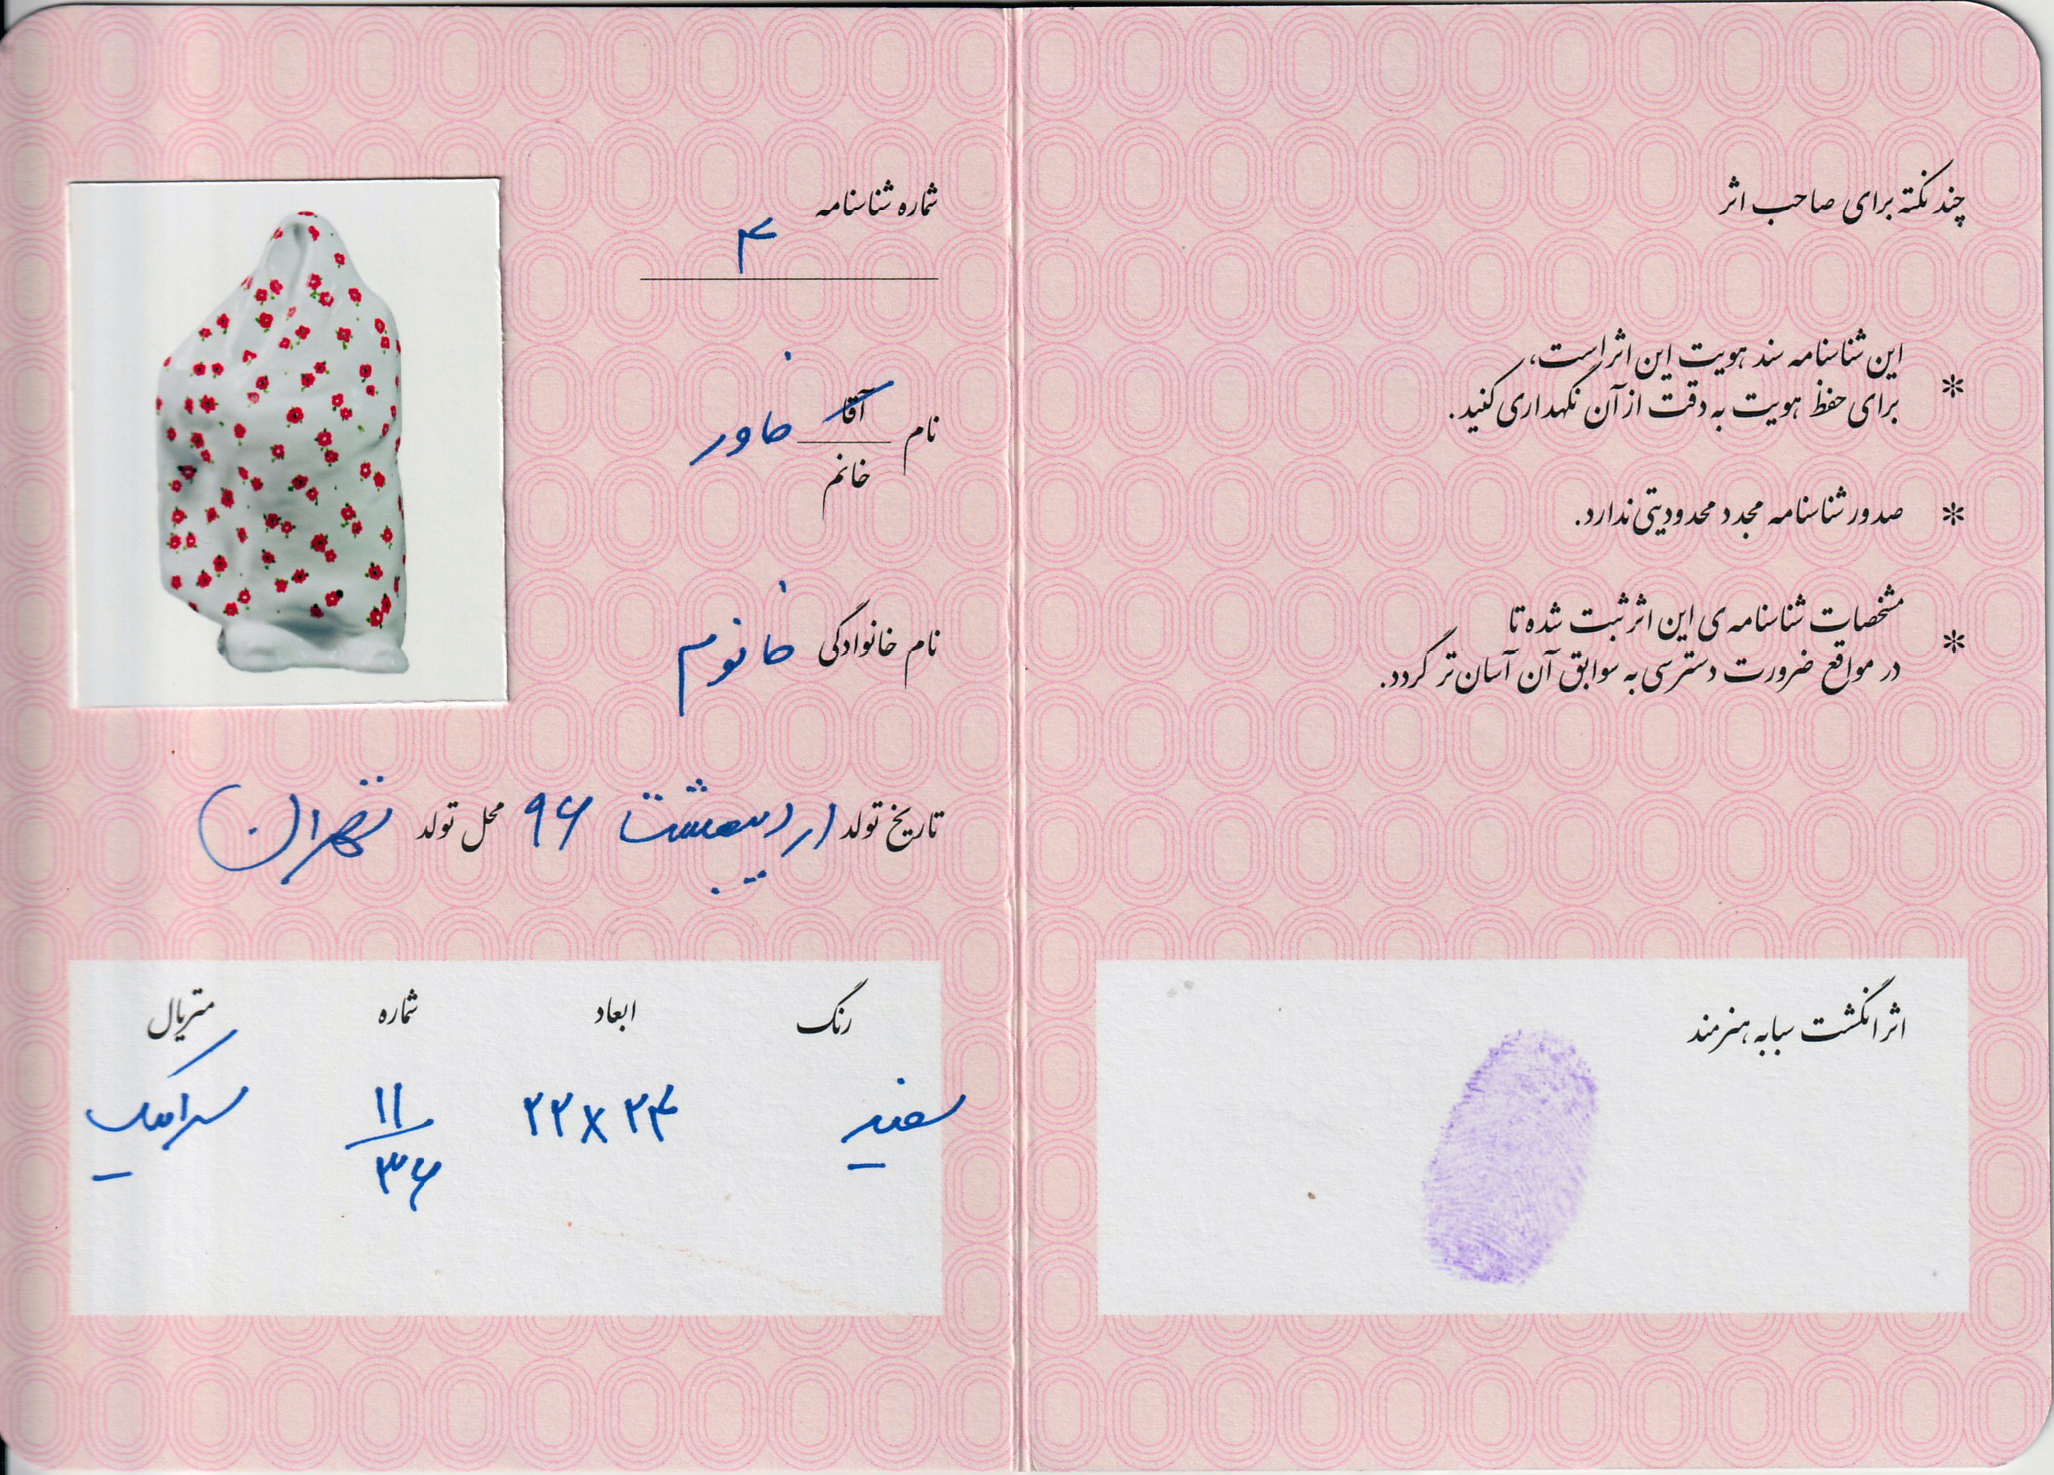 چند نکته برای صاحب اثر
* این شناسنامه سند هویت این اثر است،
برای حفظ هویت به دقت از آن نگهداری کنید.
* صدور شناسنامه مجدد محدودیتی ندارد.
* مشخصات شناسنامه‌ی این اثر ثبت شده تا
در مواقع ضرورت دسترسی به سوابق آن آسان‌تر گردد.
اثر انگشت سبابه هنرمند
شماره شناسنامه
۴
نام آقا خاور
خانم
نام خانوادگی خانوم
تاریخ تولد اردیبهشت ۹۶ محل تولد تهران
رنگ ابعاد شماره متریال
سفید ۲۲x۲۴ ۱۱/۳۶ سرامیک